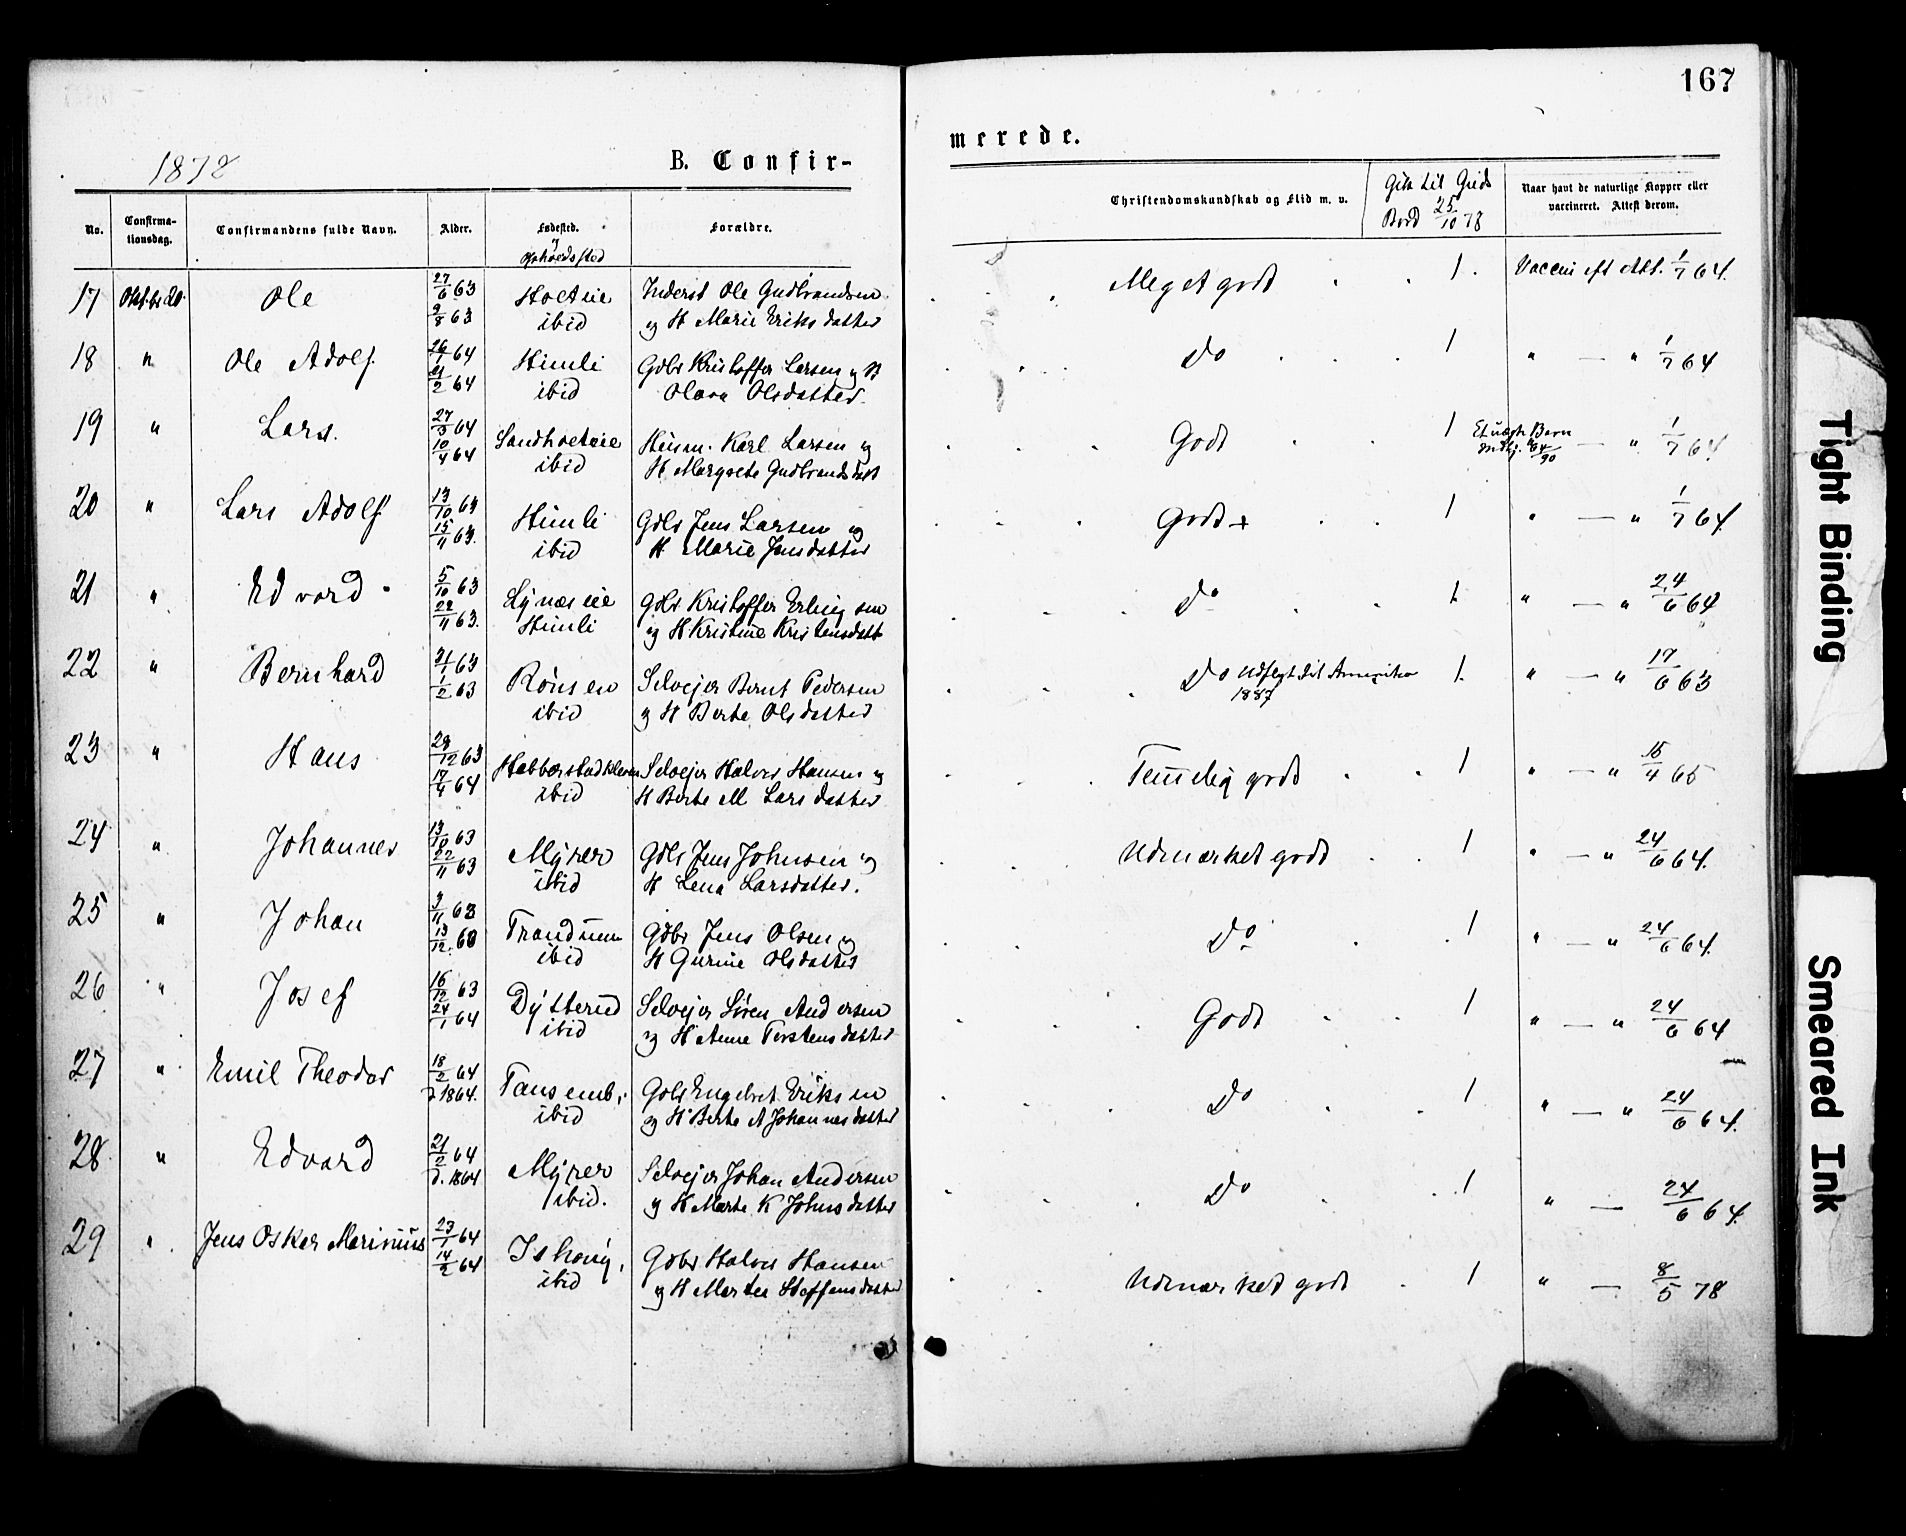 167
1878
B. Confir-
merede.
No.
Confirma-
tionsdag.
Confirmandens fulde Navn.
Alder.
Fødested.
Forældre.
Christendomskundskab og Flid m. v.
Gik til Guds
Bord 25/10 78
Naar havt de naturlige Kopper eller
vaccineret. Attest derom.
17 Oktbr 20. Ole 27/6 63 Inderst Ole Gudbrandsen Meget godt 1. Vaccin eft Att. 1/7 64.
63 ibid og H Marie Eriksdatter
18 " Ole Adolf 26/1 64 Himli Gdbr Kristoffer Larsen og H Do 1 " — " 1/7 64
21/2 64 ibid Olava Olsdatter
19 " Lars. 27/3 64 Husm. Karl Larsen og Godt 1 — " 1/7 64
10/4 64 ibid H Margrete Gudbrandsdatt
20 " Lars Adolf 13/10 63 Himli Gdbr Jens Larsen og Godt + 1 " — " 1/7 64.
15/11 63. ibid H Marie Jensdatter
21 " Edvard 5/10 63 Lynæs eie Gdbr Kristoffer Erlingsen Do 1 " — " 24/6 64
22/11 63. Himli og H Kristine Kristensdatt
22 " Bernhard 63 Rönsen Selvejer Bernt Pedersen Do Udflyt til Amerika 1. " — " 17/6 63
1/2 63 ibid og H Berte Olsdatter 1887
23 " Hans 63 Habberstadkleven Selvejer Halvor Hansen og Temmelig godt 1 " — " 15/4 65
17/4 64 ibid H Berte M Larsdatter
24 " Johannes 13/10 63 Myrer Gdbr Jens Johnsen og Udmærket godt 1 " — " 24/6 64.
22/11 63 ibid H Lena Larsdatter.
25 " Johan 3/11 63 Trandum Gdbr Jens Olsen og Do 1 " — " 24/6 64.
13/12 ibid H Gurine Olsdatter
26 " Josef 16/12 63 Dytterud Selvejer Sören Andersen Godt 1 " — " 24/6 64
24/1 64 ibid og H Anne Torstensdatter
27 " Emil Theodor 18/2 64 Gdbr Engebret Eriksen Do 1 " — " 24/6 64.
1864. ibid og H Berte A Johannesdatter
28 " Edvard 21/2 64 Myrer Selvejer Johan Andersen Do 1 " — 24/6 64.
1864 ibid. og H Marte K Johnsdatter
29 " Jens Oskar Marinius 23/1 64 Gdbr Halvor Hansen Udmærket godt 1 " — 8/5 78
14/2 64 ibid og H Marte Steffensdatter
Tight Binding
Smeared Ink